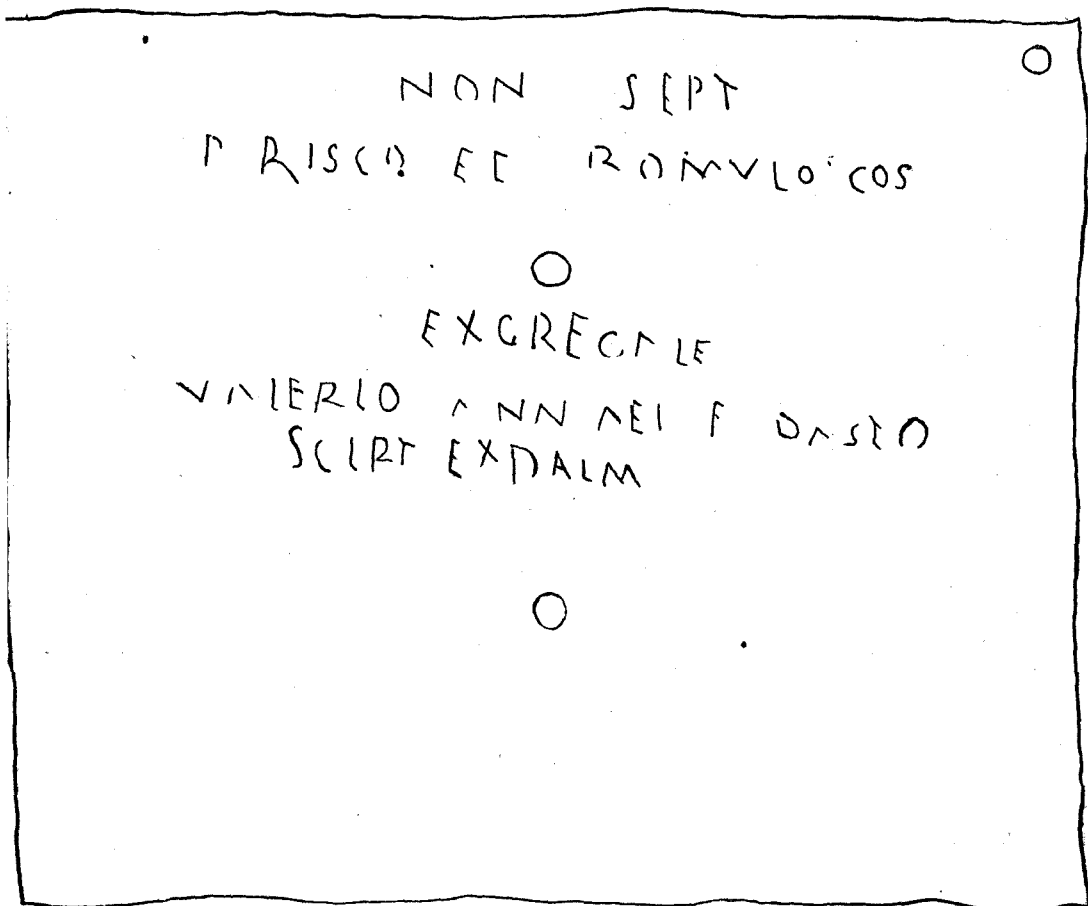 NON SEPT
PRISCO ET ROMVLO COS
EXGREGALE
VALERIO ANNAEI F DASTO
SCIRT EXDALM